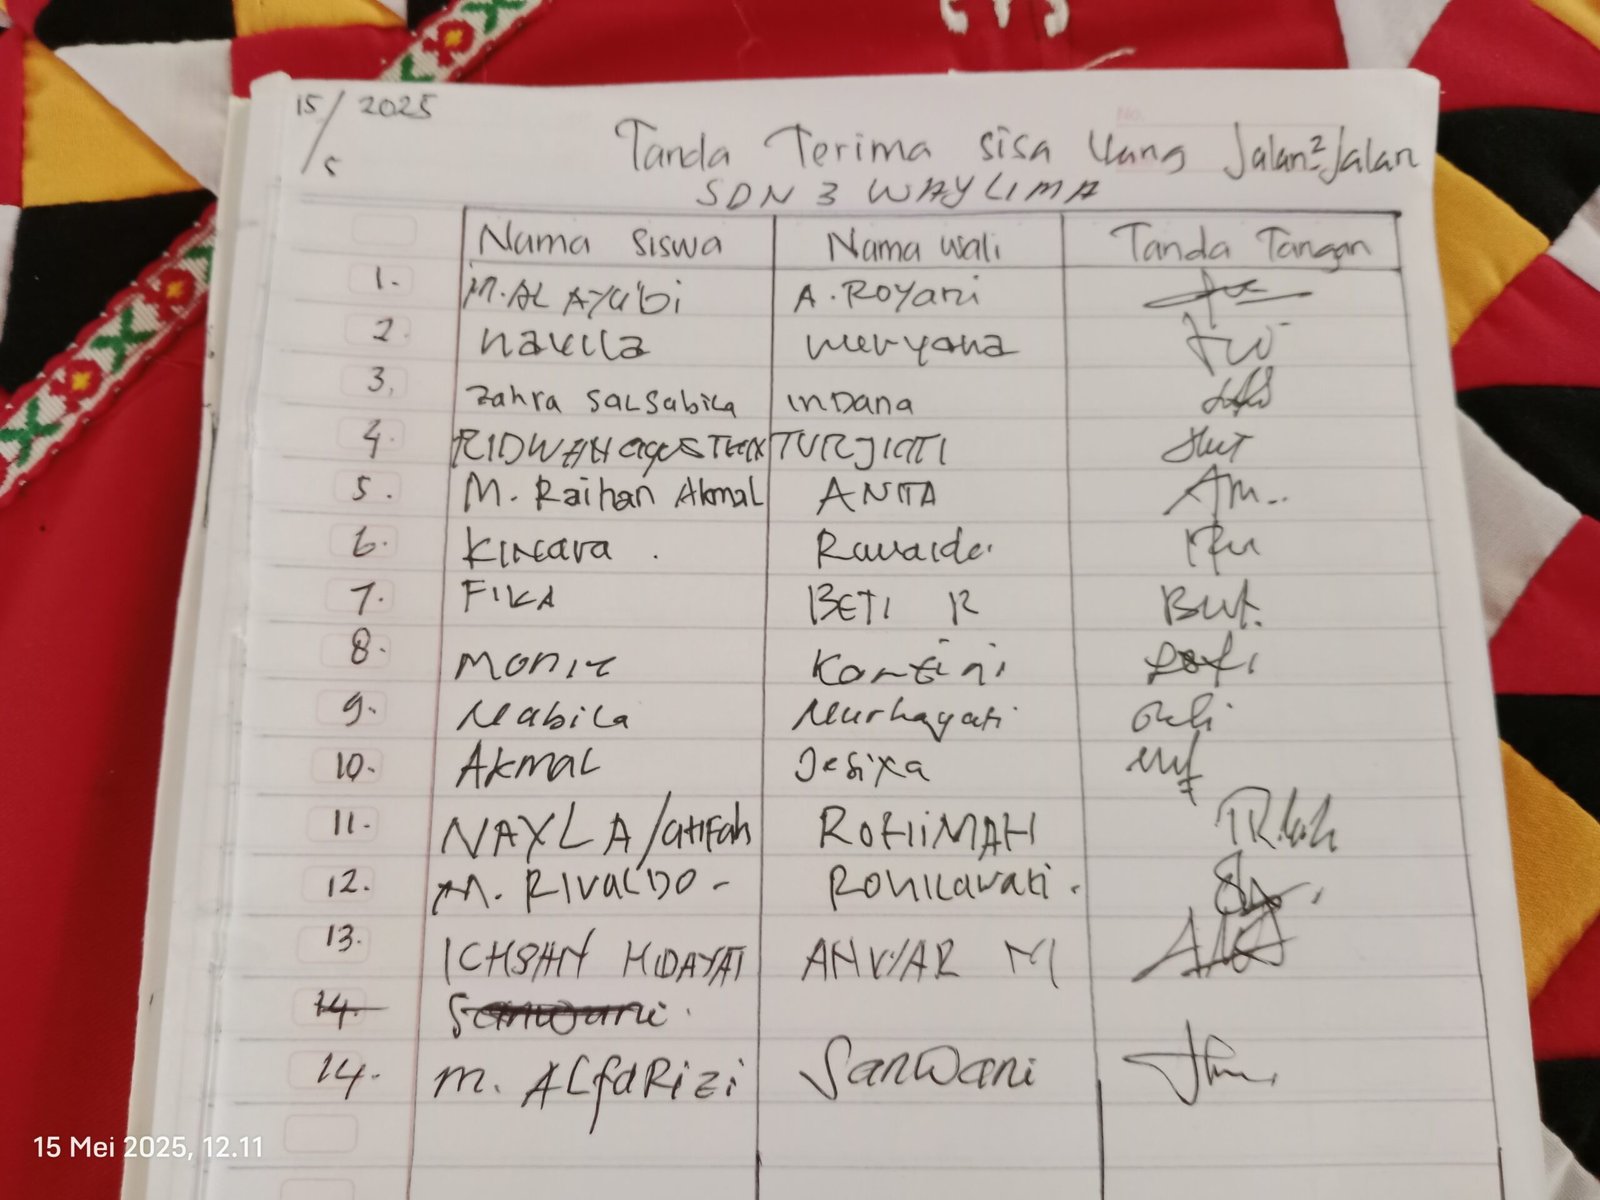 15/5 2025
Tanda Terima sisa Uang Jalan²-Jalan
SDN 3 WAY LIMA
Nama siswa Nama wali Tanda Tangan
1. M. AL AYUbi A. ROYani
2. naulla meryana
3. Zahra SaLSabiLa InDana
4. RIDWAN agusTian TURJIATI
5. M. Raihan Akmal ANITA
6. Kinara . Rawaida
7. FIKA BETI R
8. Monic Kartini
9. Nabila Nurhayati
10. Akmal Jesixa
11. NAYLA/atifah ROHIMAH
12. M. RIVALDO - Rohilawati .
13. ICHSAN HIDAYAT ANWAR M
14. Sanwani.
14. M. ALfaRizi Sanwani
15 Mei 2025, 12.11